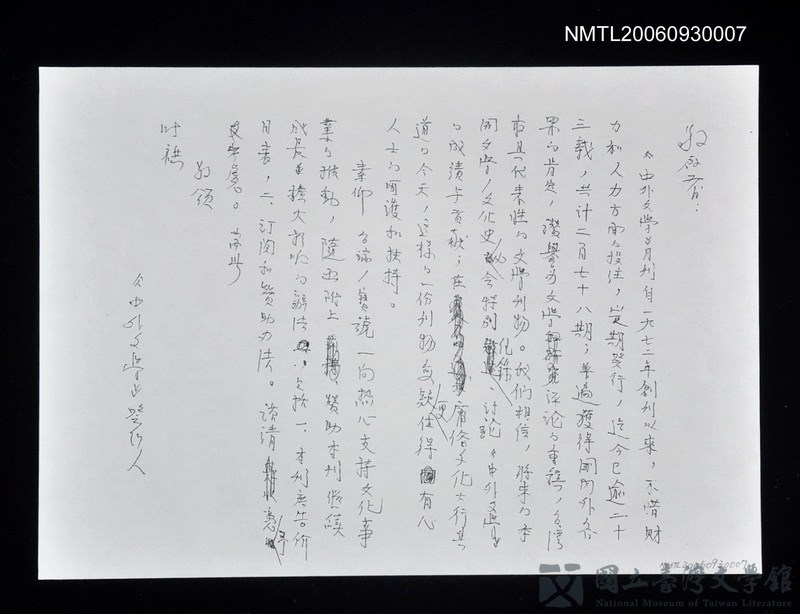 NMTL20060930007
敬啟者:
《中外文學》月刊自一九七二年創刊以來,不惜財
力和人力方面的投注,定期發行,迄今已逾二十
三載,共計二百七十八期;普遍獲得國內外各
界的肯定,讚譽為文學評論的重鎮,台灣
最具代表性的文學刊物。我們相信,將來的本
國文學/文化史必會特別 討論《中外文學》
的成績與貢獻;在 庸俗文化大行其
道的今天,這樣的一份刊物更值得有心
人士的呵護和扶持。
素仰 台端/寶號一向熱心支持文化事
業的推動,隨函附上 贊助本刊繼續
成長並擴大影響的辦法,包括一、本刊廣告價
目表,二、訂閱和贊助辦法。敬請 惠予
考慮。耑此
敬頌
時祺
《中外文學》發行人
NMTL20060930007
國立臺灣文學館
National Museum of Taiwan Literature